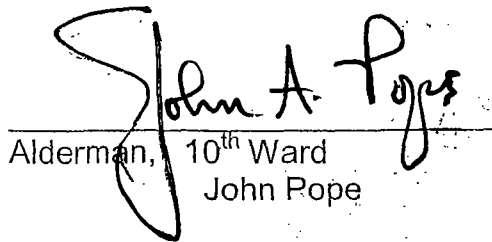 John A. Pope
Alderman, 10th Ward
John Pope